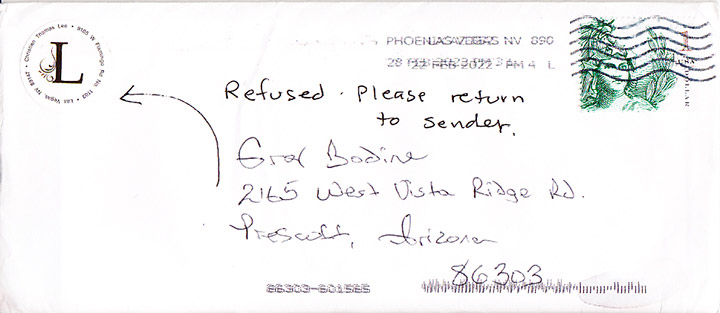 Christian Thomas Lee • 9105 W Flamingo Rd. No. 1103 • Las Vegas, NV 89147 •
L
NV 890
22 FEB 2022 PM 4 L
USA
DOLLAR
Refused. Please return
to sender.
Bodine
2165 West Vista Ridge Rd.
Prescott, Arizona
86303
86303-601565